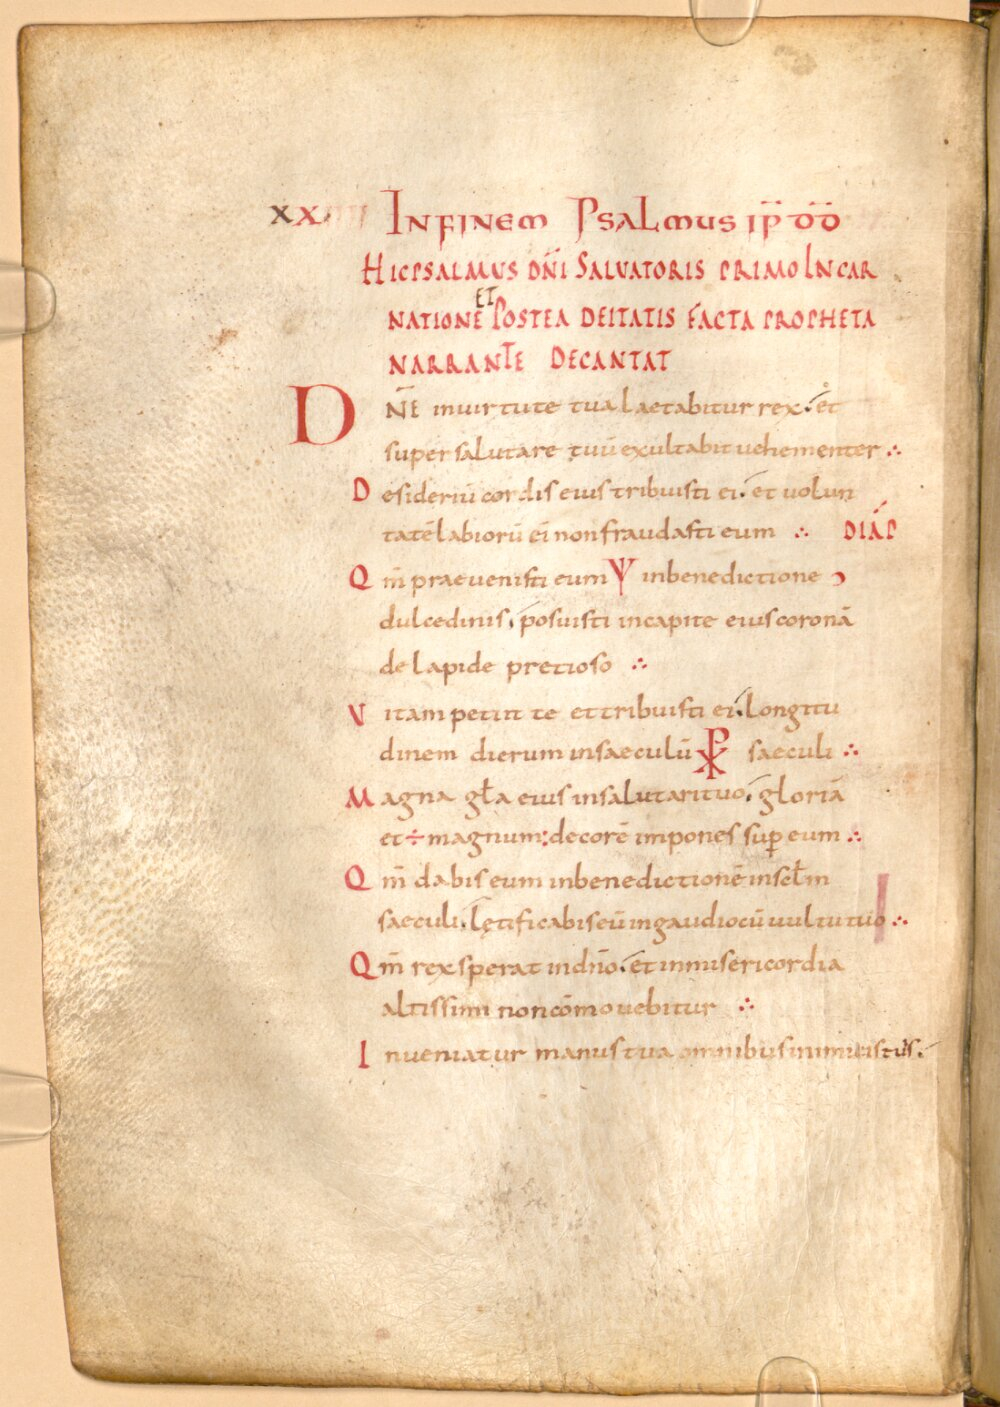 XX IN FINEM PSALMUS IP̄ DD̄
HIC PSALMUS DN̄I SALVATORIS PRIMO INCAR
ET
NATIONE POSTEA DEITATIS FACTA PROPHETA
NARRANTE DECANTAT
D NE̅ in uirtute tua laetabitur rex. et
super salutare tuū exultabit uehementer ∴
Desideriū cordis eius tribuisti ei. et uolun
tatē labiorū ei̅ non fraudasti eum ∴ DIAP
Qm̄ praeuenisti eum Ѱ in benedictione
dulcedinis. posuisti in capite eius coronā
de lapide pretioso ∴
Vitam petiit te et tribuisti ei. longitu
dinem dierum in saeculū ☧ saeculi ∴
Magna gła eius in salutari tuo. gloriā
et ÷ magnum: decorē impones sup̄ eum ∴
Qm̄ dabis eum in benedictionē in scłm
saeculi. lętificabis eū in gaudio cū uultu tuo ∴
Qm̄ rex sperat in dn̄o. et in misericordia
altissimi non cōmouebitur ∴
Inueniatur manus tua omnibus inimicis tuis.